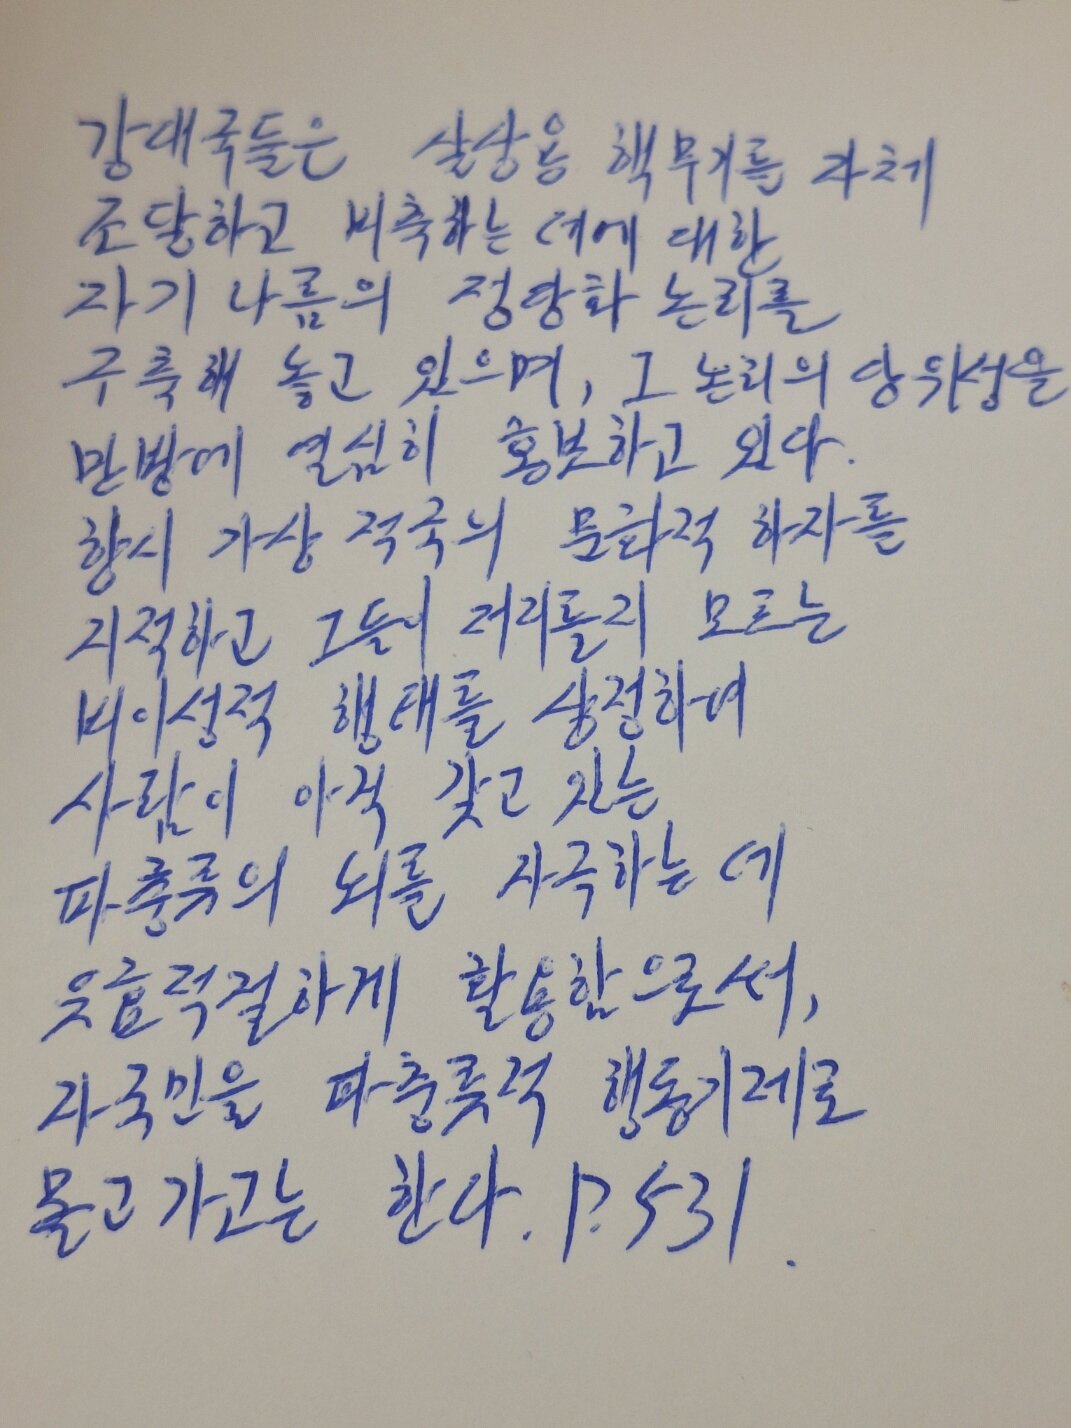 강대국들은 살상용 핵무기를 자체
조달하고 비축하는 데에 대한
자기 나름의 정당화 논리를
구축해 놓고 있으며, 그 논리의 당위성을
만방에 열심히 홍보하고 있다.
항시 가상 적국의 문화적 하자를
지적하고 그들이 저리를지 모르는
비이성적 행태를 상정하여
사람이 아직 갖고 있는
파충류의 뇌를 자극하는 데
적절하게 활용함으로써,
자국민을 파충류적 행동기제로
몰고 가고는 한다. P. 531.